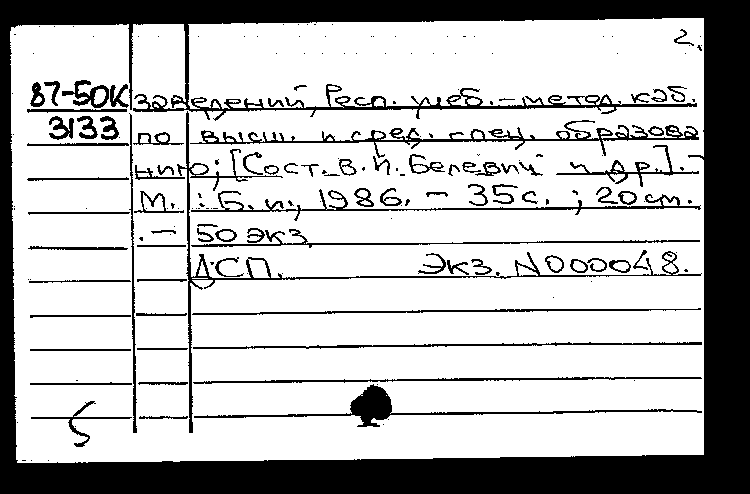 2.
87-50К заведений, Респ. учеб.-метод. каб.
3133 по высш. и сред. спец. образова
нию; [Сост. В. И. Белевич и др.]. -
М. : Б. и., 1986. - 35 с. ; 20 см.
. - 50 экз.
ДСП. Экз. N000048.
5